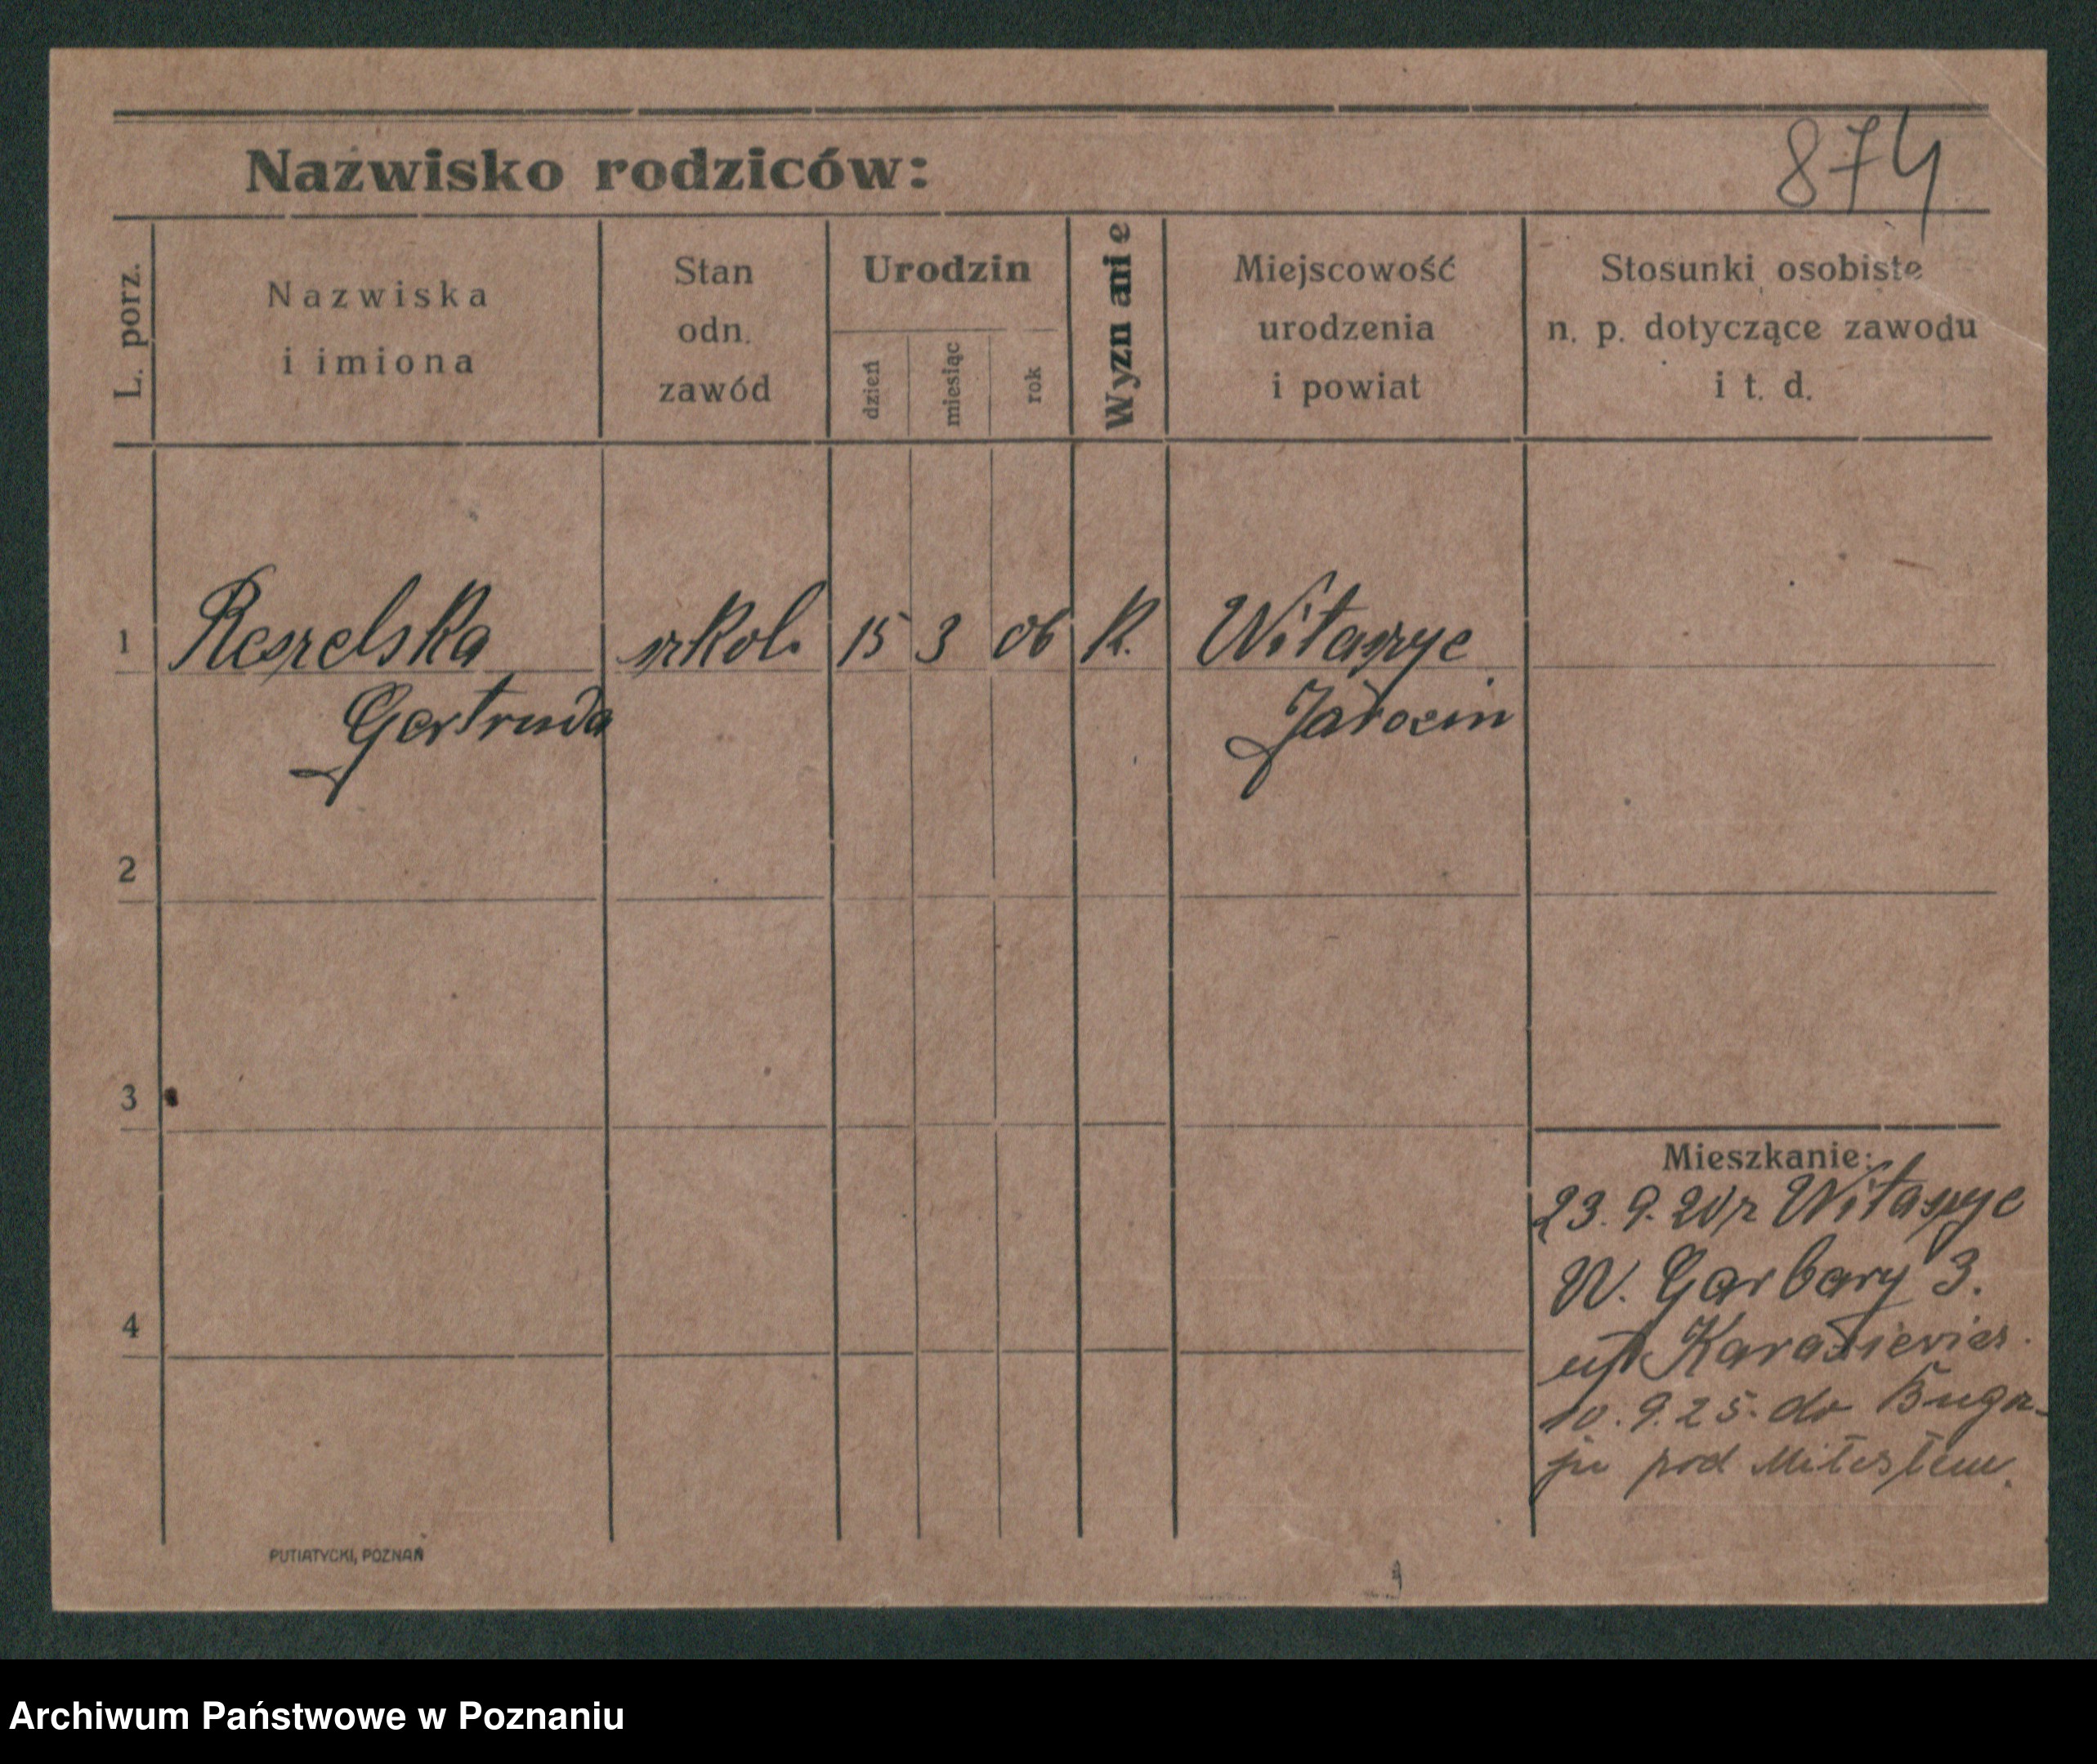 Nazwisko rodziców:
874
L. porz.
Nazwiska
i imiona
Stan
odn.
zawód
Urodzin
dzień
miesiąc
rok
Wyznanie
Miejscowość
urodzenia
i powiat
Stosunki osobiste
n. p. dotyczące zawodu
i t. d.
1 Reszelska szkol. 15 3 06 K. Witaszyce
Gertruda Jarocin
2
3
4
Mieszkanie:
23. 9. 20 z Witaszyce
W. Garbary 3.
Karasiewicz.
10. 9. 25. do Buga-
ju pod Miłosłem.
PUTIATYCKI, POZNAŃ
Archiwum Państwowe w Poznaniu